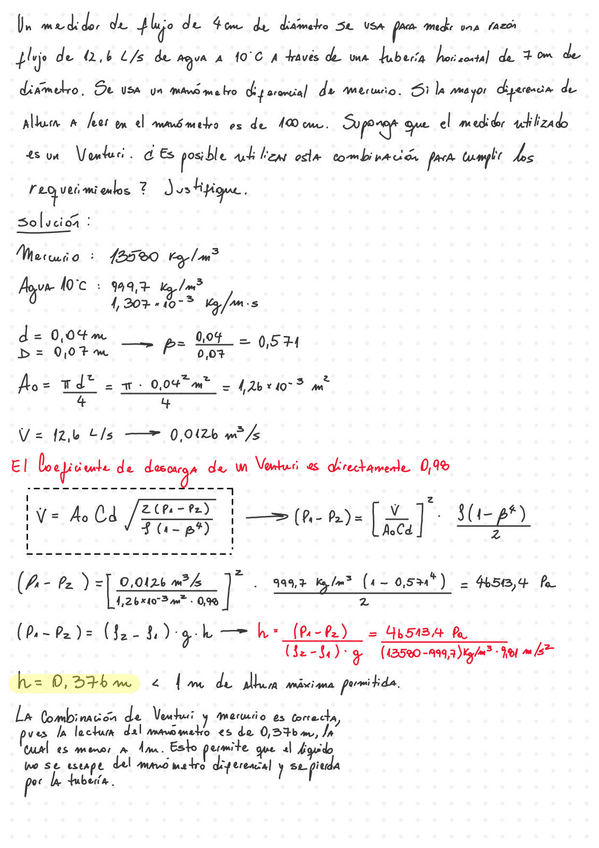 Un medidor de flujo de 4 cm de diámetro se usa para medir una razón
flujo de 12,6 L/s de agua a 10°C a través de una tubería horizontal de 7 cm de
diámetro. Se usa un manómetro diferencial de mercurio. Si la mayor diferencia de
Altura a leer en el manómetro es de 100 cm. Suponga que el medidor utilizado
es un Venturi. ¿Es posible utilizar esta combinación para cumplir los
requerimientos? Justifique.
solución:
Mercurio : 13580 kg/m³
Agua 10°C : 999,7 kg/m³
1,307 × 10⁻³ kg/m·s
d = 0,04 m
D = 0,07 m → β = 0,04/0,07 = 0,571
A₀ = πd²/4 = π · 0,04² m²/4 = 1,26 × 10⁻³ m²
V̇ = 12,6 L/s → 0,0126 m³/s
El Coeficiente de descarga de un Venturi es directamente 0,98
V̇ = A₀ Cd √(2(P₁ - P₂)/ρ(1 - β⁴)) → (P₁ - P₂) = [V̇/A₀Cd]² · ρ(1 - β⁴)/2
(P₁ - P₂) = [0,0126 m³/s / 1,26×10⁻³ m² · 0,98]² · 999,7 kg/m³ (1 - 0,571⁴)/2 = 46513,4 Pa
(P₁ - P₂) = (ρ₂ - ρ₁) · g · h → h = (P₁ - P₂)/(ρ₂ - ρ₁) · g = 46513,4 Pa/(13580 - 999,7) kg/m³ · 9,81 m/s²
h = 0,376 m < 1 m de altura máxima permitida.
La combinación de Venturi y mercurio es correcta,
pues la lectura del manómetro es de 0,376 m, la
cual es menor a 1m. Esto permite que el líquido
no se escape del manómetro diferencial y se pierda
por la tubería.